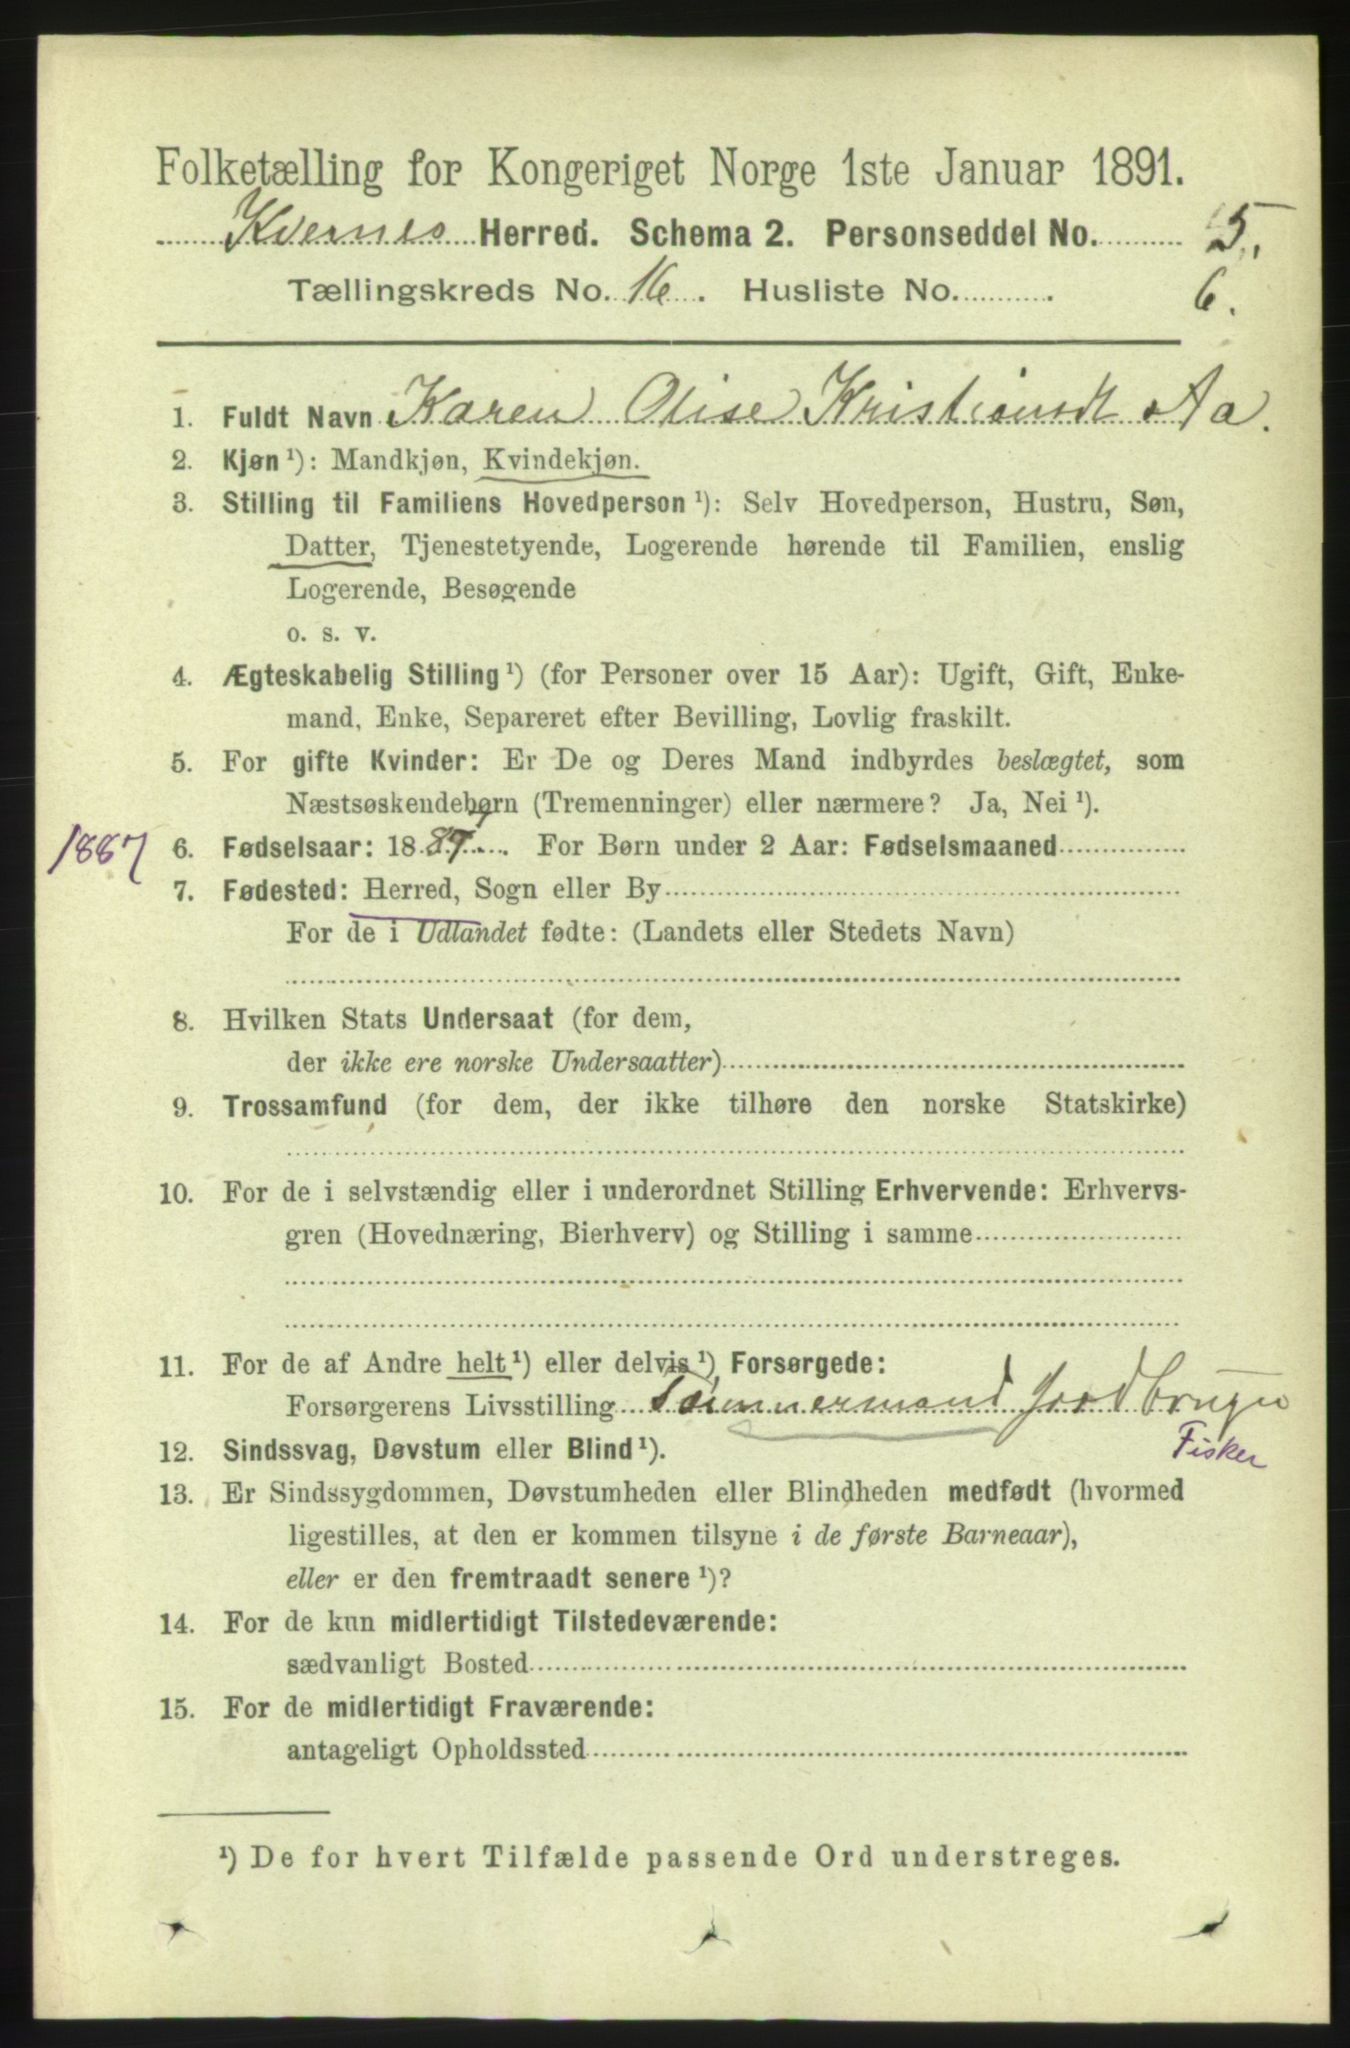 Folketælling for Kongeriget Norge 1ste Januar 1891.
Kvernes Herred. Schema 2. Personseddel No. 5.
Tællingskreds No. 16. Husliste No. 6.
1. Fuldt Navn Karen Olise Kristiansdt Aa.
2. Kjøn ¹): Mandkjøn, Kvindekjøn.
3. Stilling til Familiens Hovedperson ¹): Selv Hovedperson, Hustru, Søn,
Datter, Tjenestetyende, Logerende hørende til Familien, enslig
Logerende, Besøgende
o. s. v.
4. Ægteskabelig Stilling ¹) (for Personer over 15 Aar): Ugift, Gift, Enke-
mand, Enke, Separeret efter Bevilling, Lovlig fraskilt.
5. For gifte Kvinder: Er De og Deres Mand indbyrdes beslægtet, som
Næstsøskendebørn (Tremenninger) eller nærmere? Ja, Nei ¹).
1887 6. Fødselsaar: 1887. For Børn under 2 Aar: Fødselsmaaned
7. Fødested: Herred, Sogn eller By
For de i Udlandet fødte: (Landets eller Stedets Navn)
8. Hvilken Stats Undersaat (for dem,
der ikke ere norske Undersaatter)
9. Trossamfund (for dem, der ikke tilhøre den norske Statskirke)
10. For de i selvstændig eller i underordnet Stilling Erhvervende: Erhvervs-
gren (Hovednæring, Bierhverv) og Stilling i samme
11. For de af Andre helt ¹) eller delvis ¹) Forsørgede:
Forsørgerens Livsstilling Tømmermand Jordbruger
Fisker
12. Sindssvag, Døvstum eller Blind ¹).
13. Er Sindssygdommen, Døvstumheden eller Blindheden medfødt (hvormed
ligestilles, at den er kommen tilsyne i de første Barneaar),
eller er den fremtraadt senere ¹)?
14. For de kun midlertidigt Tilstedeværende:
sædvanligt Bosted
15. For de midlertidigt Fraværende:
antageligt Opholdssted
¹) De for hvert Tilfælde passende Ord understreges.